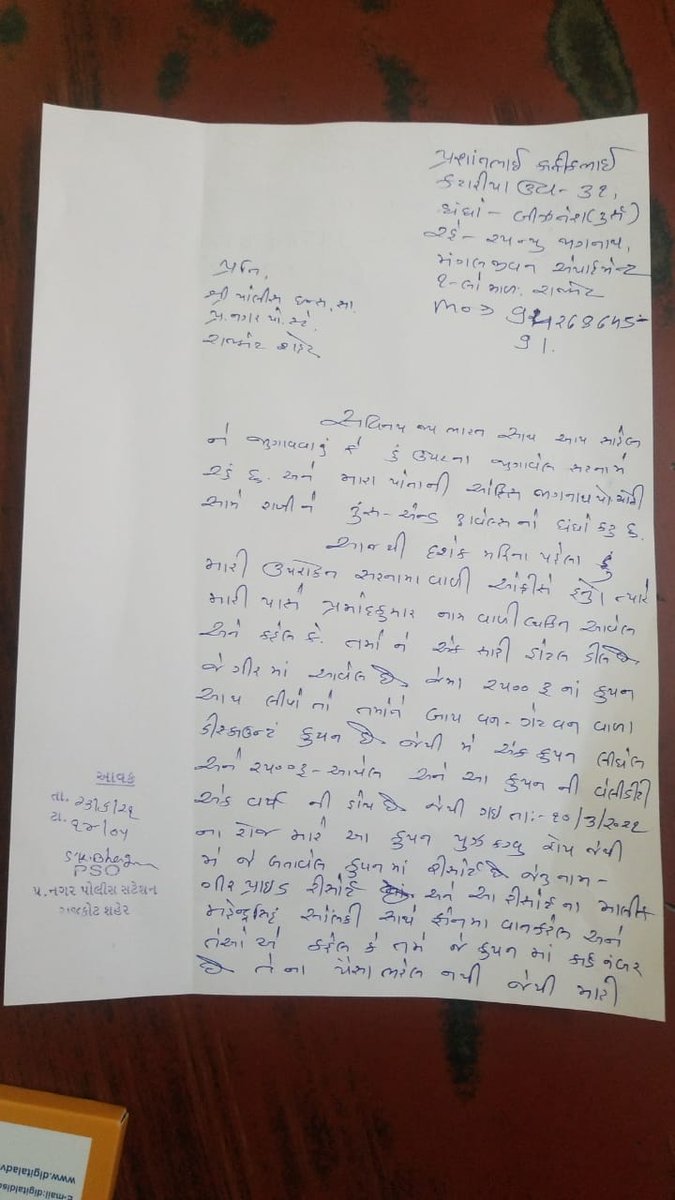 પ્રશાંતભાઈ કાર્તીકભાઈ
કટારીયા ઉવ- ૩૨,
ધંધો- બીઝનેશ(ટુર્સ)
રહે- ૨૫ન્યુ જાગનાથ,
મંગલજીવન એપાર્ટમેન્ટ
૧-લો માળ. રાજકોટ
mo→
91.
પ્રતિ,
શ્રી પોલીસ ઇન્સ. સા.
પ્ર.નગર પો.સ્ટે.
રાજકોટ શહેર
સવિનય જય ભારત સાથ આપ સાહેબ
ને જણાવવાનું કે હું ઉપરના જણાવેલ સરનામે
રહું છુ. અને મારા પોતાની ઓફિસ જાગનાથ પો.ચોકી
સામે રાખીને ટુર્સ-એન્ડ ટ્રાવેલ્સ નો ધંધો કરૂ છુ.
આજ થી દશેક મહિના પહેલા હું
મારી ઉપરોક્ત સરનામા વાળી ઓફીસે હતો ત્યારે
મારી પાસે પ્રમોદકુમાર નામ વાળી વ્યક્તિ આવેલ
અને કહેલ કે. તમો ને એક સારી હોટલ ડીલ છે
જે ગીર માં આવેલ છે જેમા ૨૫૦૦ રૂ નાં કુપન
આપ લીધો તો તમોને બાય વન-ગેટ વન વાળા
ડીસ્કાઉન્ટ કુપન છે જેથી મે એક કુપન લીધેલ
અને ૨૫૦૦રૂ- આપેલ અને આ કુપન ની વેલીડીટી
એક વર્ષ ની હોય છે જેથી ગઇ તા:- ૧૦/૩/૨૦૨૧
ના રોજ મારે આ કુપન યુઝ કરવુ હોય જેથી
મે જે બતાવેલ કુપન માં રીસોર્ટ છે જેનુ નામ-
ગીર પ્રાઇડ રીસોર્ટ અને આ રીસોર્ટ ના માલીક
મહેન્દ્રસિંહ સોલંકી સાથે ફોનમા વાત કરેલ અને
તેઓ એ કહેલ કે તમે જે કુપન માં કાર્ડ નંબર
છે તે ના પૈસા ભરેલ નથી જેથી મારી
આવક
તા.
ટા. ૧૪/૦૫
PSO
પ્ર.નગર પોલીસ સ્ટેશન
રાજકોટ શહેર
www.digitaladv
E-mail:digital